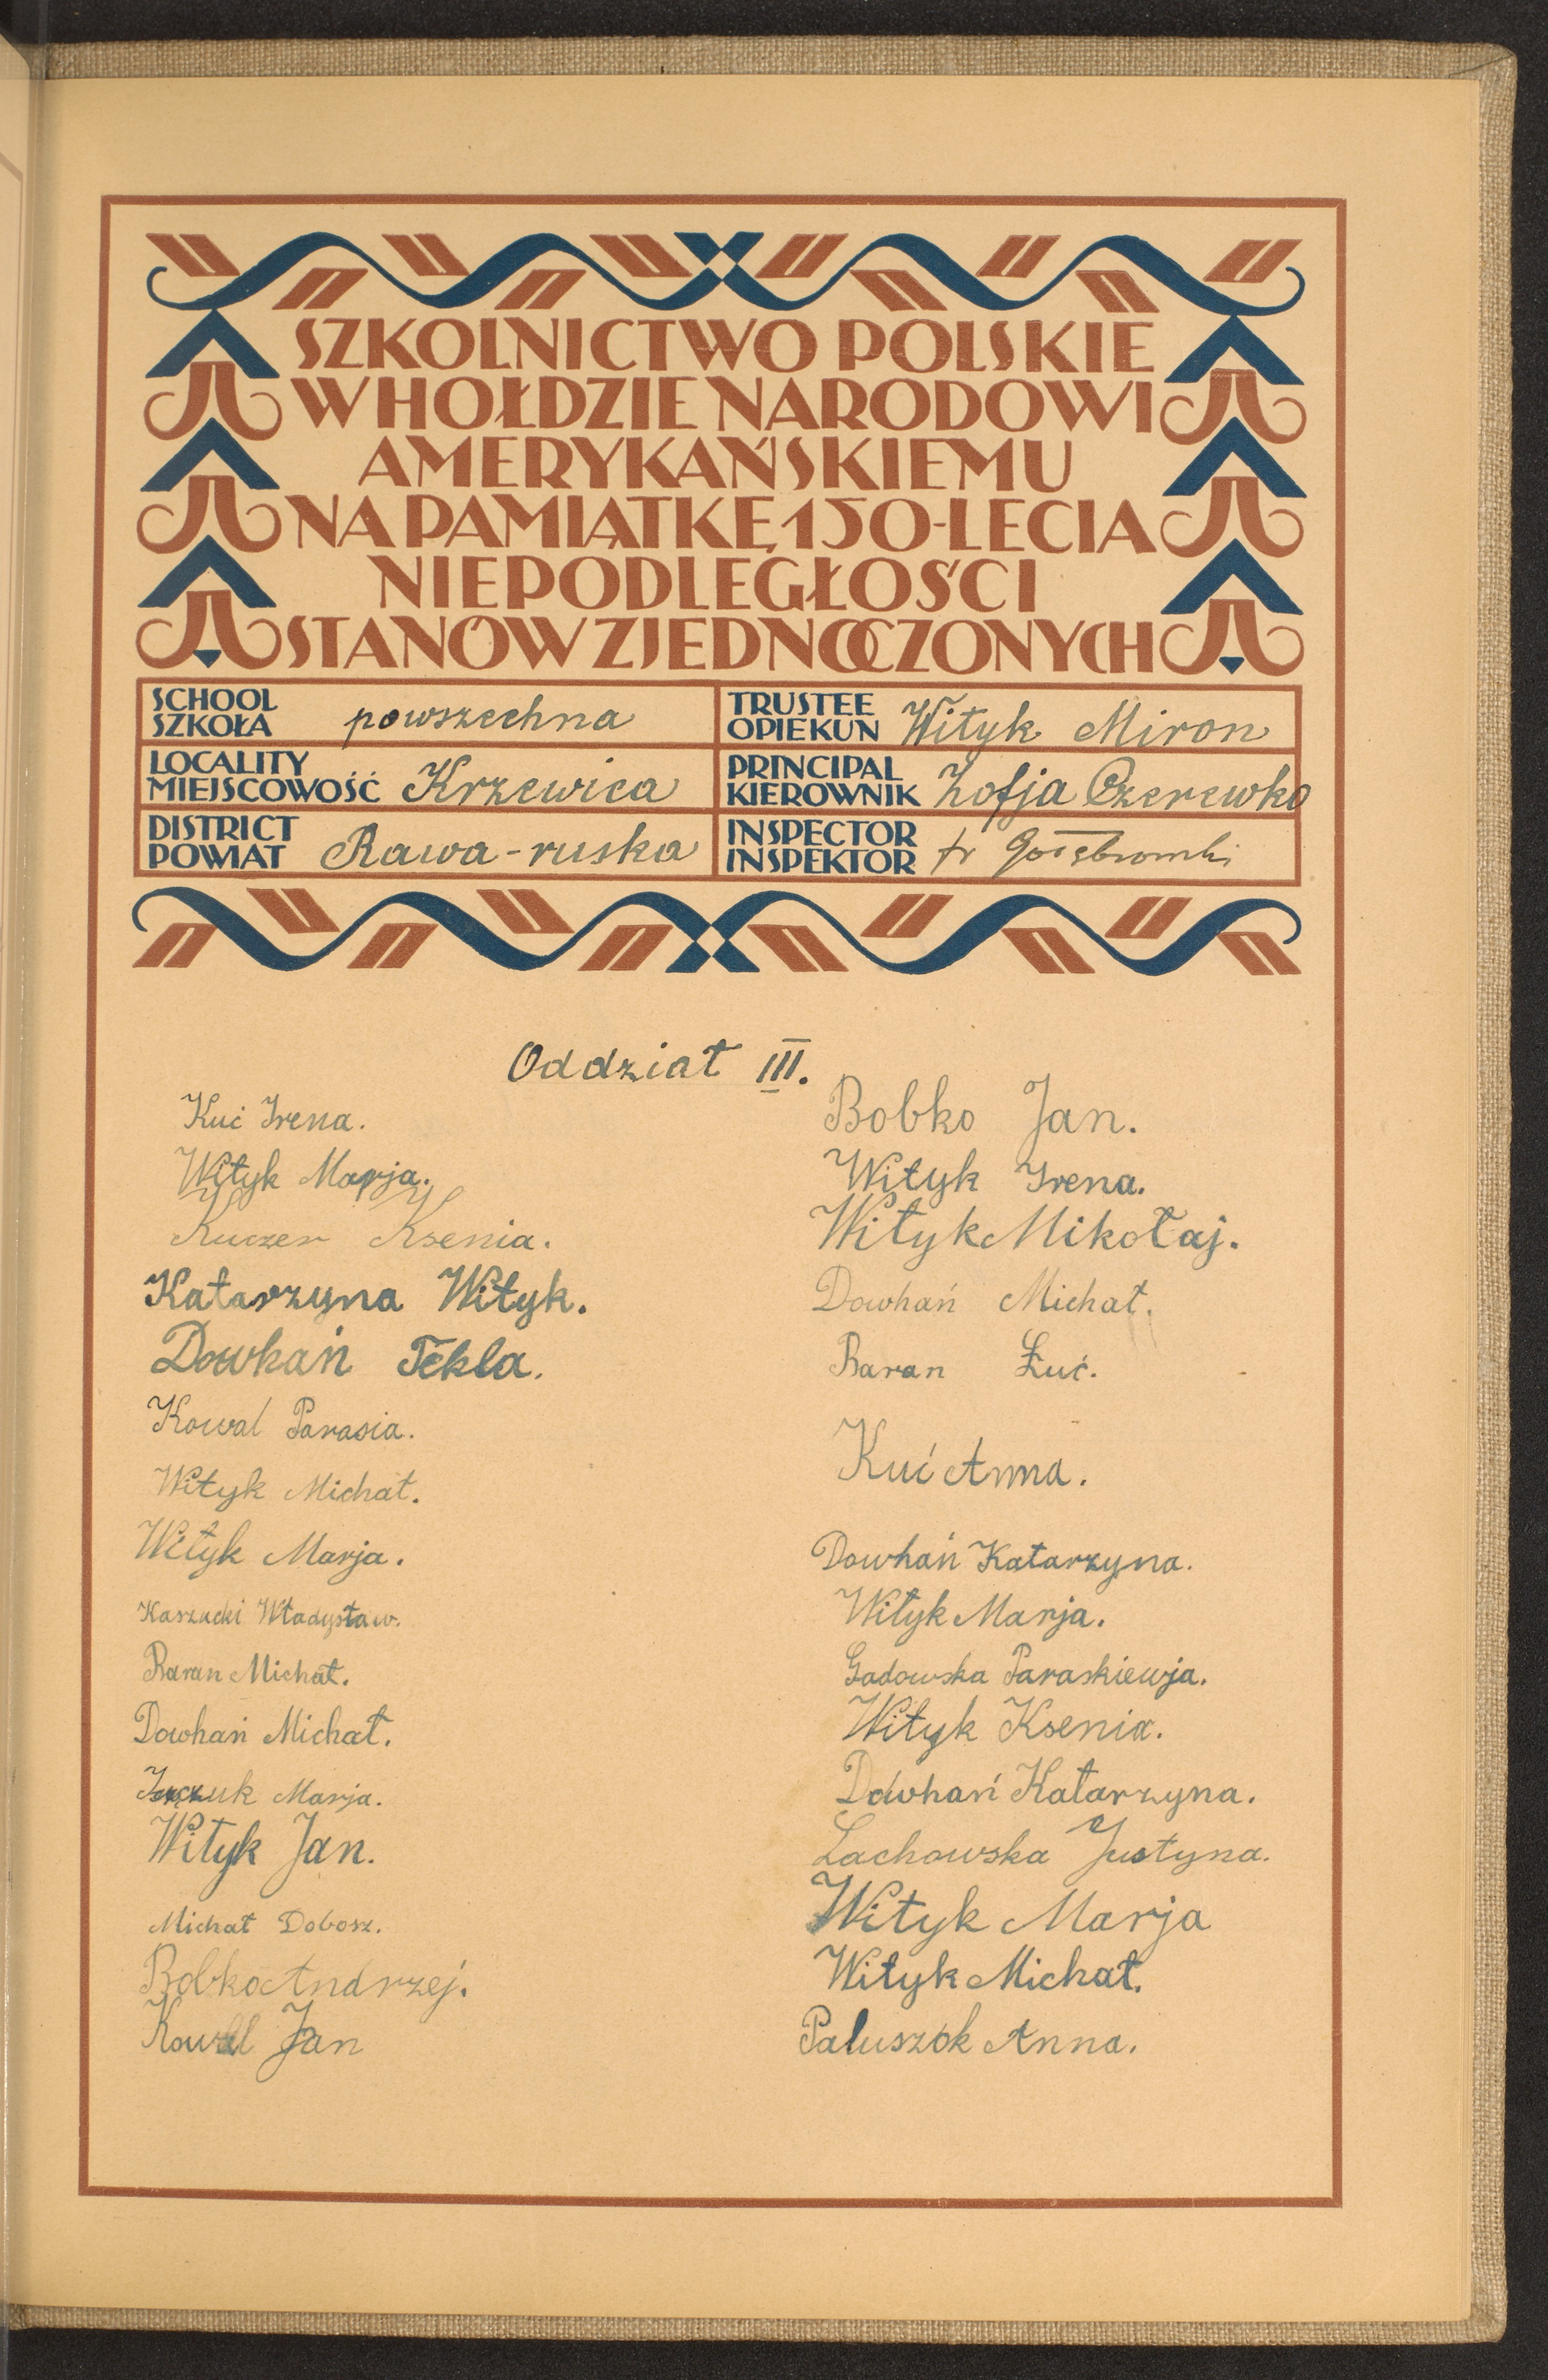 SZKOLNICTWO POLSKIE
W HOŁDZIE NARODOWI
AMERYKAŃSKIEMU
NA PAMIĄTKĘ 150-LECIA
NIEPODLEGŁOŚCI
STANÓW ZJEDNOCZONYCH
SCHOOL
SZKOŁA powszechna
LOCALITY
MIEJSCOWOŚĆ Krzewica
DISTRICT
POWIAT Rawa-ruska
TRUSTEE
OPIEKUN Wityk Miron
PRINCIPAL
KIEROWNIK Zofja Czerewko
INSPECTOR
INSPEKTOR
Oddział III.
Kuć Irena.
Wityk Marja.
Kuczer Ksenia.
Katarzyna Wityk.
Dowhań Tekla.
Kowal Parasia.
Wityk Michał.
Wityk Marja.
Karzucki Władysław.
Baran Michał.
Dowhań Michał.
Marja.
Wityk Jan.
Michał Dobosz.
Bobko Andrzej.
Kowal Jan
Bobko Jan.
Wityk Irena.
Wityk Mikołaj.
Dowhań Michał.
Baran Łuć.
Kuć Anna.
Dowhań Katarzyna.
Wityk Marja.
Gadowska Paraskiewja.
Wityk Ksenia.
Dowhań Katarzyna.
Lachowska Justyna.
Wityk Marja
Wityk Michał.
Paluszok Anna.